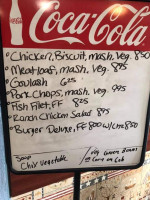 Coca-Cola
Chicken, Biscuit, mash, Veg. 850
Meatloaf, mash, Veg. 895
Goulash 625
Pork Chops, mash, Veg. 895
Fish Filet, FF 825
Ranch Chicken Salad 895
Burger Deluxe, FF 800 w/Chz 850
Soup Veg Green Beans
Chix Vegetable or Corn on Cob